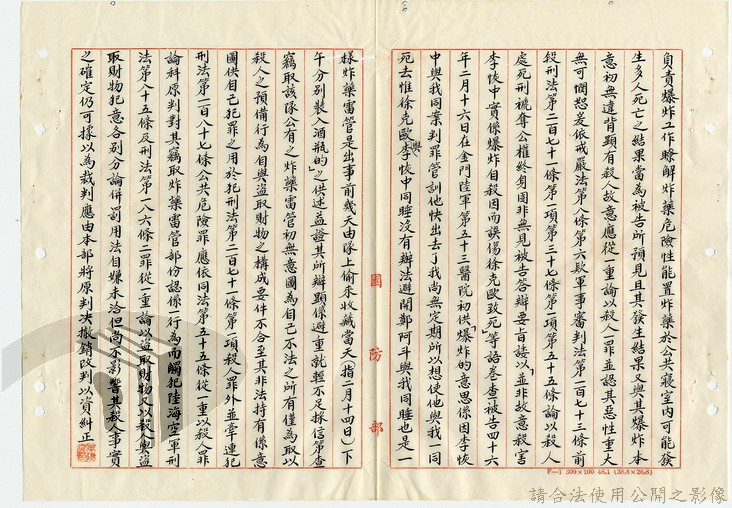 負責爆炸工作瞭解炸藥危險性能置炸藥於公共寢室內可能發
生多人死亡之結果當為被告所預見且其發生結果又與其爆炸本
意初無違背顯有殺人故意應從一重論以殺人罪並認其惡性重大
無可憫恕爰依戒嚴法第八條第六款軍事審判法第一百七十三條前
段刑法第二百七十一條第一項第三十七條第一項第五十五條論以殺人
處死刑褫奪公權終身固非無見被告答辯要旨諉以並非故意殺害
李恢中實係爆炸自殺因而誤傷徐克歐致死等語卷查被告四十六
年二月十六日在金門陸軍第五十三醫院初供「爆炸的意思係因李恢
中與我同案判罪管訓他快出去了我尚無定期所以想使他與我一同
死去惟徐克歐與李恢中同睡沒有辦法避開鄭阿斗與我同睡也是一
國防部
樣炸藥雷管是出事前幾天由隊上偷來收藏當天(指二月十四日)下
午分別裝入酒瓶的」之供述益證其所辯顯係避重就輕不足採信第查
竊取該隊公有之炸藥雷管初無意圖為自己不法之所有僅為取以
殺人之預備行為自與盜取財物之構成要件不合至其非法持有係意
圖供自己犯罪之用於犯刑法第二百七十一條第一項殺人罪外並牽連犯
刑法第一百八十七條公共危險罪應依同法第五十五條從一重以殺人罪
論科原判對其竊取炸藥雷管部份認係一行為而觸犯陸海空軍刑
法第八十五條及刑法第一八六條二罪從一重論以盜取財物又以殺人與盜
取財物犯意各別分論併罰用法自嫌未洽但尚不影響其殺人事實
之確定仍可據以為裁判應由本部將原判決撤銷改判以資糾正
F—1 300×100 46.1 (38.8×26.8)
請合法使用公開之影像